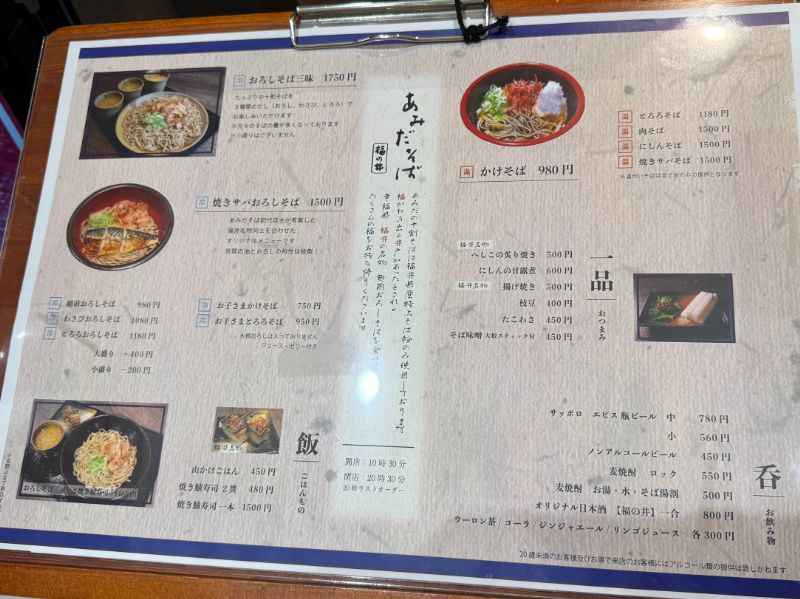 冷 おろしそば三昧 1750円
たっぷりの十割そばを
3種類のだし(おろし、わさび、とろろ)で
お楽しみいただけます
※元々のそばの量が多くなっております
※小盛りはございません
冷 焼きサバおろしそば 1500円
あみだそば初代店主が考案した
福井名物同士を合わせた
オリジナルメニューです
良質の油とおろしの相性は抜群!
冷 越前おろしそば 980円
冷 わさびおろしそば 1080円
冷 とろろおろしそば 1180円
大盛り +400円
小盛り -200円
お子さまかけそば 750円
お子さまとろろそば 950円
大根おろしは入っておりません
ジュース・ゼリー付き
おろしそば
福井名物
飯
ごはんもの
山かけごはん 450円
焼き鯖寿司2貫 480円
焼き鯖寿司一本 1500円
あみだそば
福の井
あみだの十割そばは福井県産極上そば粉のみ使用しております
福がわき出る井戸があったとされる
幸福県 福井の名物 越前おろしそばを食べて
たくさんの福をお持ち帰りくださいませ
開店:10時30分
閉店:20時30分
20時ラストオーダー
温 かけそば 980円
温 とろろそば 1180円
温 肉そば 1500円
温 にしんそば 1500円
温 焼きサバそば 1500円
一品
おつまみ
福井名物
へしこの炙り焼き 500円
にしんの甘露煮 600円
福井名物 揚げ焼き 500円
枝豆 400円
たこわさ 450円
そば味噌 大根スティック付 450円
呑
お飲み物
サッポロ エビス 瓶ビール 中 780円
小 560円
ノンアルコールビール 450円
麦焼酎 ロック 550円
麦焼酎 お湯・水・そば湯割 500円
オリジナル日本酒【福の井】一合 800円
ウーロン茶/コーラ/ジンジャエール/リンゴジュース 各300円
20歳未満のお客様及びお車で来店のお客様にはアルコール類の提供は致しかねます